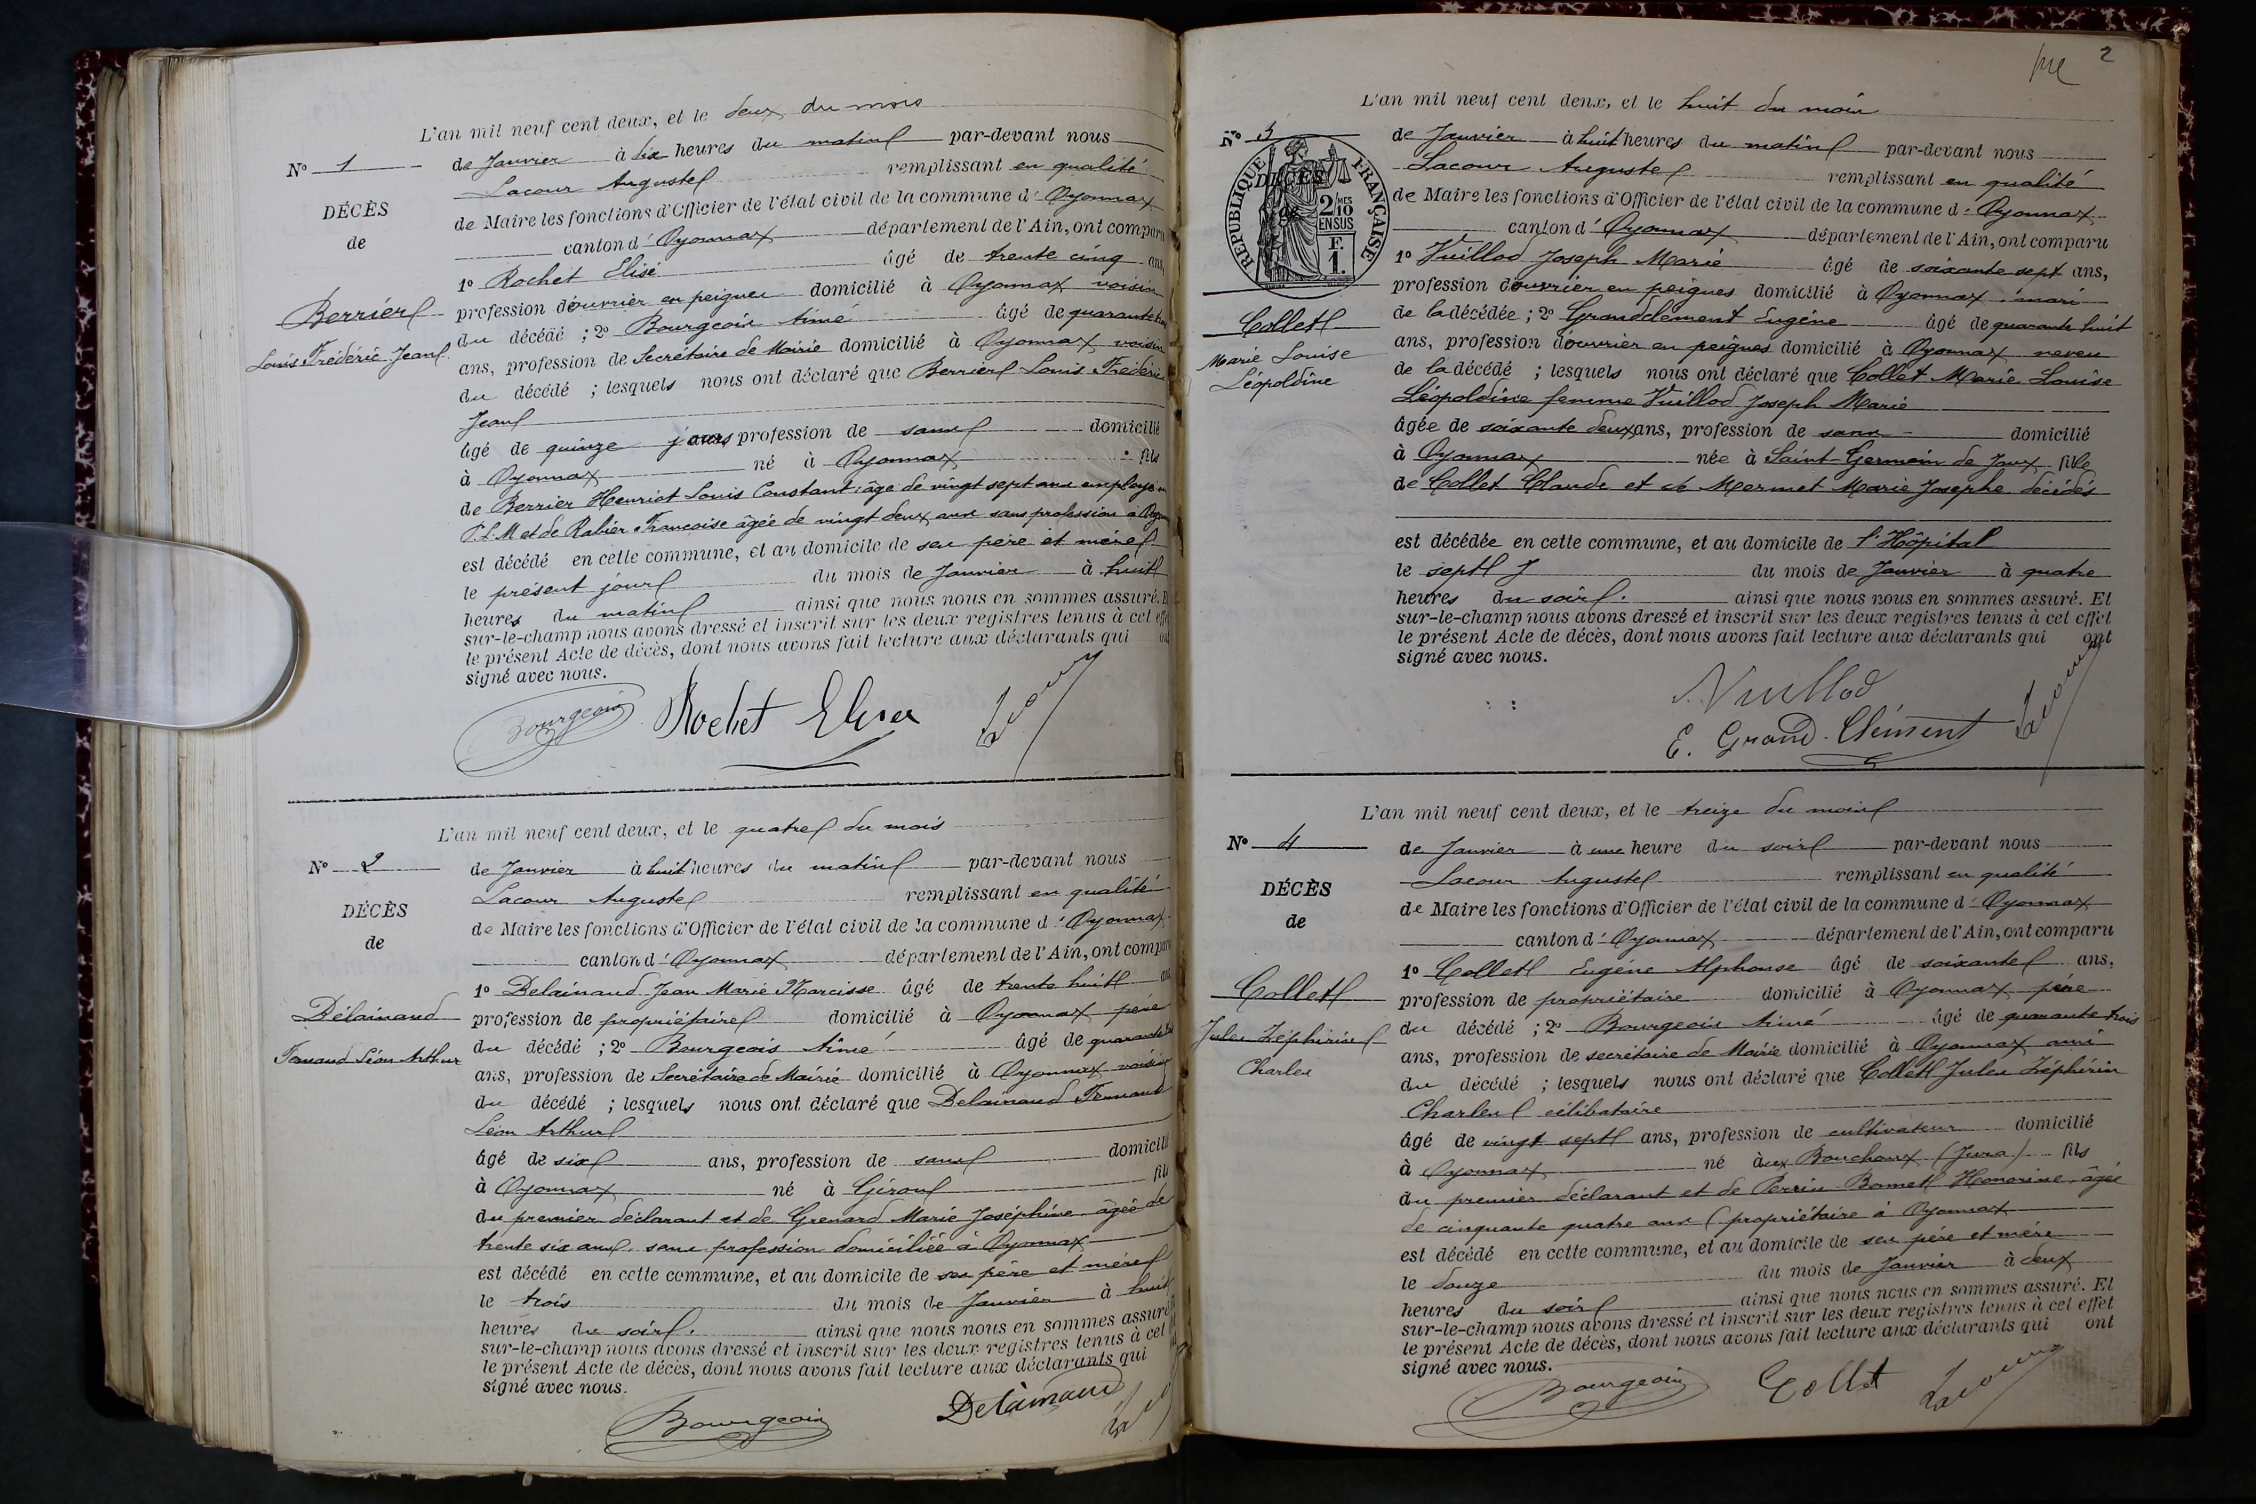 L'an mil neuf cent deux, et le deux du mois
N° 1
de Janvier à dix heures du matin par-devant nous
Lacour Auguste remplissant en qualité
DÉCÈS
de Maire les fonctions d'Officier de l'état civil de la commune d' Oyonnax
de
canton d' Oyonnax département de l'Ain, ont comparu
1° Rochet Elisé âgé de trente cinq ans,
Berrier
profession d'ouvrier en peignes domicilié à Oyonnax voisin
du décédé ; 2° Bourgeois Aimé âgé de quarante
Louis Frédéric Jean
ans, profession de Secrétaire de Mairie domicilié à Oyonnax voisin
du décédé ; lesquels nous ont déclaré que Berrier Louis Frédéric
Jean
âgé de quinze jours profession de sans domicilié
à Oyonnax né à Oyonnax fils
de Berrier Henriot Louis Constant âgé de vingt sept ans employé
et de Rabier Francoise âgée de vingt deux ans sans profession à
est décédé en cette commune, et au domicile de ses père et mère
le présent jour du mois de Janvier à huit
heures du matin ainsi que nous nous en sommes assuré.
sur-le-champ nous avons dressé et inscrit sur les deux registres tenus à cet effet
le présent Acte de décès, dont nous avons fait lecture aux déclarants qui ont
signé avec nous.
Bourgeois Rochet Elisée Lacour
L'an mil neuf cent deux, et le quatre du mois
N° 2
de Janvier à huit heures du matin par-devant nous
Lacour Auguste remplissant en qualité
DÉCÈS
de Maire les fonctions d'Officier de l'état civil de la commune d' Oyonnax
de
canton d' Oyonnax département de l'Ain, ont comparu
1° Delainaud Jean Marie Narcisse âgé de trente huit ans
Délainaud
profession de propriétaire domicilié à Oyonnax père
du décédé ; 2° Bourgeois Aimé âgé de quarante
Fernand Léon Arthur
ans, profession de Secrétaire de Mairie domicilié à Oyonnax voisin
du décédé ; lesquels nous ont déclaré que Delainaud Fernand
Léon Arthur
âgé de six ans, profession de sans domicilié
à Oyonnax né à Giron fils
du premier déclarant et de Grenard Marie Joséphine âgée de
trente six ans, sans profession domiciliée à Oyonnax
est décédé en cette commune, et au domicile de ses père et mère
le trois du mois de Janvier à huit
heures du soir. ainsi que nous nous en sommes assuré
sur-le-champ nous avons dressé et inscrit sur les deux registres tenus à cet
le présent Acte de décès, dont nous avons fait lecture aux déclarants qui
signé avec nous.
Bourgeois Delainaud Lacour
2
L'an mil neuf cent deux, et le huit du mois
N° 3
de Janvier à huit heures du matin par-devant nous
Lacour Auguste remplissant en qualité
RÉPUBLIQUE FRANÇAISE
DÉCÈS
de
2 MES
10
EN SUS
F.
1.
de Maire les fonctions d'Officier de l'état civil de la commune d' Oyonnax
canton d' Oyonnax département de l'Ain, ont comparu
1° Vuillod Joseph Marie âgé de soixante sept ans,
profession d'ouvrier en peignes domicilié à Oyonnax mari
Collet
de la décédée ; 2° Grandclement Eugène âgé de quarante huit
ans, profession d'ouvrier en peignes domicilié à Oyonnax neveu
Marie Louise
de la décédé ; lesquels nous ont déclaré que Collet Marie Louise
Léopoldine
Léopoldine femme Vuillod Joseph Marie
âgée de soixante deux ans, profession de sans domicilié
à Oyonnax née à Saint-Germain de Joux fille
de Collet Claude et de Mermet Marie Josephe décédés
est décédée en cette commune, et au domicile de l'Hôpital
le sept du mois de Janvier à quatre
heures du soir. ainsi que nous nous en sommes assuré. Et
sur-le-champ nous avons dressé et inscrit sur les deux registres tenus à cet effet
le présent Acte de décès, dont nous avons fait lecture aux déclarants qui ont
signé avec nous.
Vuillod
E. Grand-Clément Lacour
L'an mil neuf cent deux, et le treize du mois
N° 4
de Janvier à une heure du soir par-devant nous
Lacour Auguste remplissant en qualité
DÉCÈS
de Maire les fonctions d'Officier de l'état civil de la commune d' Oyonnax
de
canton d' Oyonnax département de l'Ain, ont comparu
1° Collet Eugène Alphonse âgé de soixante ans,
Collet
profession de propriétaire domicilié à Oyonnax père
du décédé ; 2° Bourgeois Aimé âgé de quarante trois
Jules Zéphirin
ans, profession de secrétaire de Mairie domicilié à Oyonnax ami
Charles
du décédé ; lesquels nous ont déclaré que Collet Jules Zéphirin
Charles célibataire
âgé de vingt sept ans, profession de cultivateur domicilié
à Oyonnax né aux Bouchoux (Jura) fils
du premier déclarant et de Perrin Bonnet Honorine âgée
de cinquante quatre ans propriétaire à Oyonnax
est décédé en cette commune, et au domicile de ses père et mère
le douze du mois de Janvier à deux
heures du soir ainsi que nous nous en sommes assuré. Et
sur-le-champ nous avons dressé et inscrit sur les deux registres tenus à cet effet
le présent Acte de décès, dont nous avons fait lecture aux déclarants qui ont
signé avec nous.
Bourgeois Collet Lacour